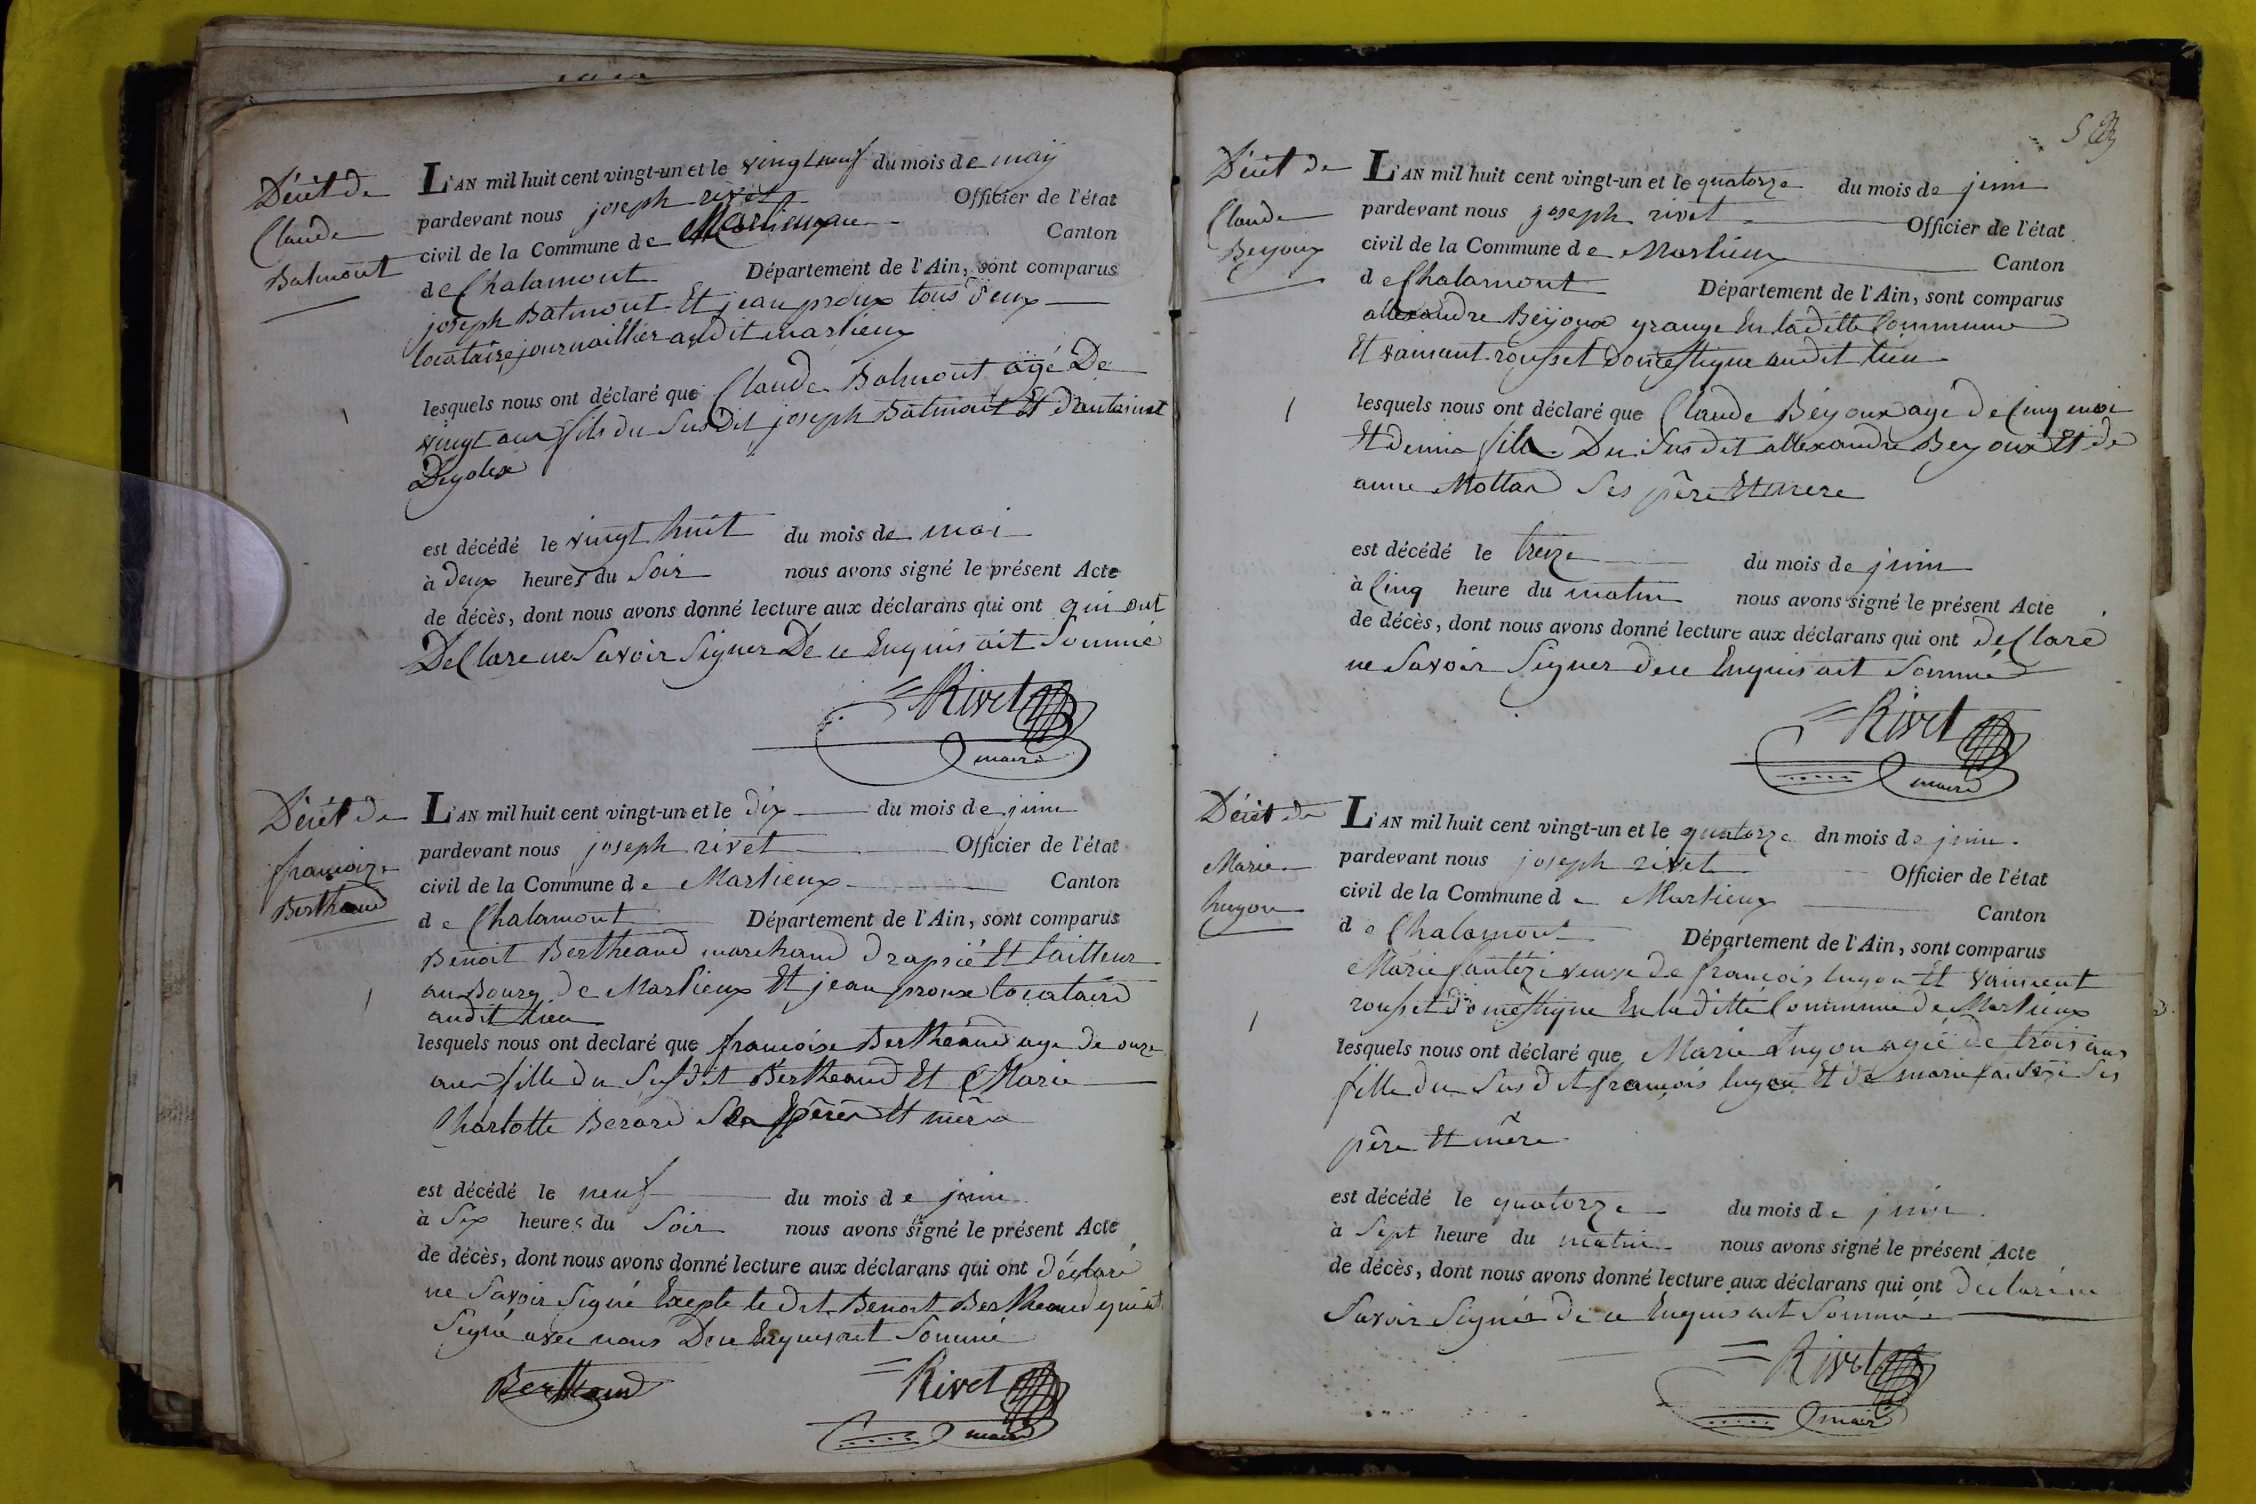 Décét de
Claude
Batmont
L'AN mil huit cent vingt-un et le vingt neuf du mois de maÿ
pardevant nous joseph rivet Officier de l'état
civil de la Commune de Marlieux Canton
de Chalamont Département de l'Ain, sont comparus
joseph Batmont Et jean proux tous deux
locataire journaillier audit marlieux
lesquels nous ont déclaré que Claude Batmont agé De
vingt ans fils du Susdit joseph Batmont Et
est décédé le vingt huit du mois de mai
à deux heures du Soir nous avons signé le présent Acte
de décès, dont nous avons donné lecture aux déclarans qui ont qui ont
DeClare ne Savoir Signer De ce Enquis ait Sommé
Rivet
maire
Décét de
francoize
Bertheaud
L'AN mil huit cent vingt-un et le dix du mois de juin
pardevant nous joseph rivet Officier de l'état
civil de la Commune de Marlieux Canton
de Chalamont Département de l'Ain, sont comparus
Benoit Bertheaud marchand drapié Et tailleur
au Bourg de Marlieux Et jean proux locataire
audit lieu
lesquels nous ont declaré que francoise Bertheaud age de onze
ans fille du Susdit Bertheaud Et Marie
Charlotte Berard Ses pères Et mère
est décédé le neuf du mois de juin
à Six heures du Soir nous avons signé le présent Acte
de décès, dont nous avons donné lecture aux déclarans qui ont déclaré
ne Savoir Signé Exepte le dit Benoit Bertheaud qui at
Signé avec nous De ce Enquis ait Sommé
Bertheaud
Rivet
maire
Décét de
Claude
Beyoux
L'AN mil huit cent vingt-un et le quatorze du mois de juin
pardevant nous joseph rivet Officier de l'état
civil de la Commune de Marlieux Canton
de Chalamont Département de l'Ain, sont comparus
allexandre Beÿoux grange En ladette Commune
Et vainient rousset domestique audit lieu
lesquels nous ont déclaré que Claude Béyoux agé de Cinq moi
Et demie fils Du Susdit allexandre Beyoux Et de
anne Mottan Ses père Et mere
est décédé le treize du mois de juin
à Cinq heure du matin nous avons signé le présent Acte
de décès, dont nous avons donné lecture aux déclarans qui ont deClaré
ne Savoir Signer de ce Enquis ait Sommé
Rivet
maire
Décét de
Marie
lugon
L'AN mil huit cent vingt-un et le quatorze dn mois de juin
pardevant nous joseph rivet Officier de l'état
civil de la Commune de Marlieux Canton
de Chalamont Département de l'Ain, sont comparus
Marie veuve de francois lugon Et vainient
rousset domestique En la ditte Commune de Marlieux
lesquels nous ont déclaré que Marie lugon agée de trois ans
fille du Susdit francois lugon Et de marie Ses
père Et mère
est décédé le quatorze du mois de juin
à Sept heure du matin nous avons signé le présent Acte
de décès, dont nous avons donné lecture aux déclarans qui ont declaré ne
Savoir Signér de ce Enquis ait Sommé
Rivet
maire